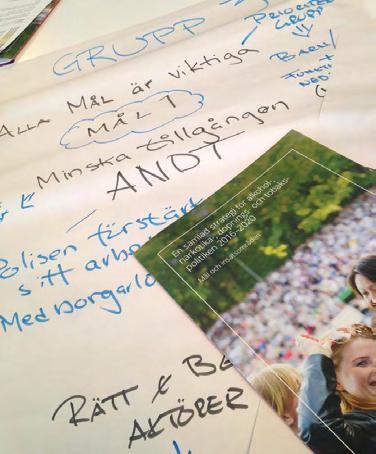 GRUPP
PRIORITER
GRUPP
BARN/
ALLA MÅL är viktiga
MÅL 1
Minska tillgången
ANDT
Polisen förstärk
sitt arbe
Medborgarlö
RÄTT & BE
AKTÖRER
En samlad strategi för alkohol-,
narkotika-, dopnings- och tobaks-
politiken 2016–2020
Mål och insatsområden